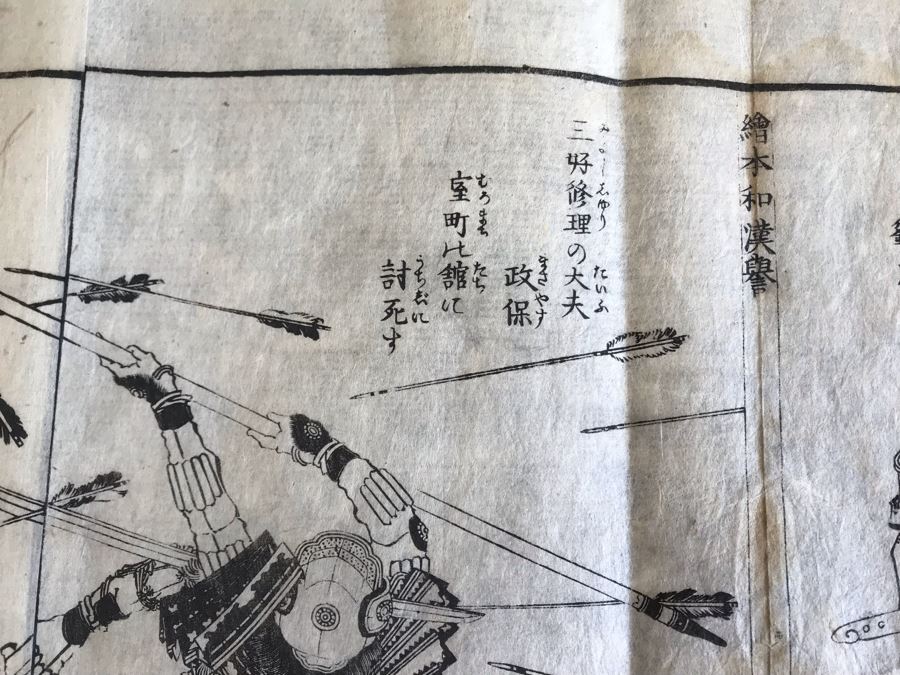 繪本和漢譽
三好修理の大夫
みよししゆり たいふ
政保
まさやす
室町の舘に
むろまち たち
討死す
うちじに